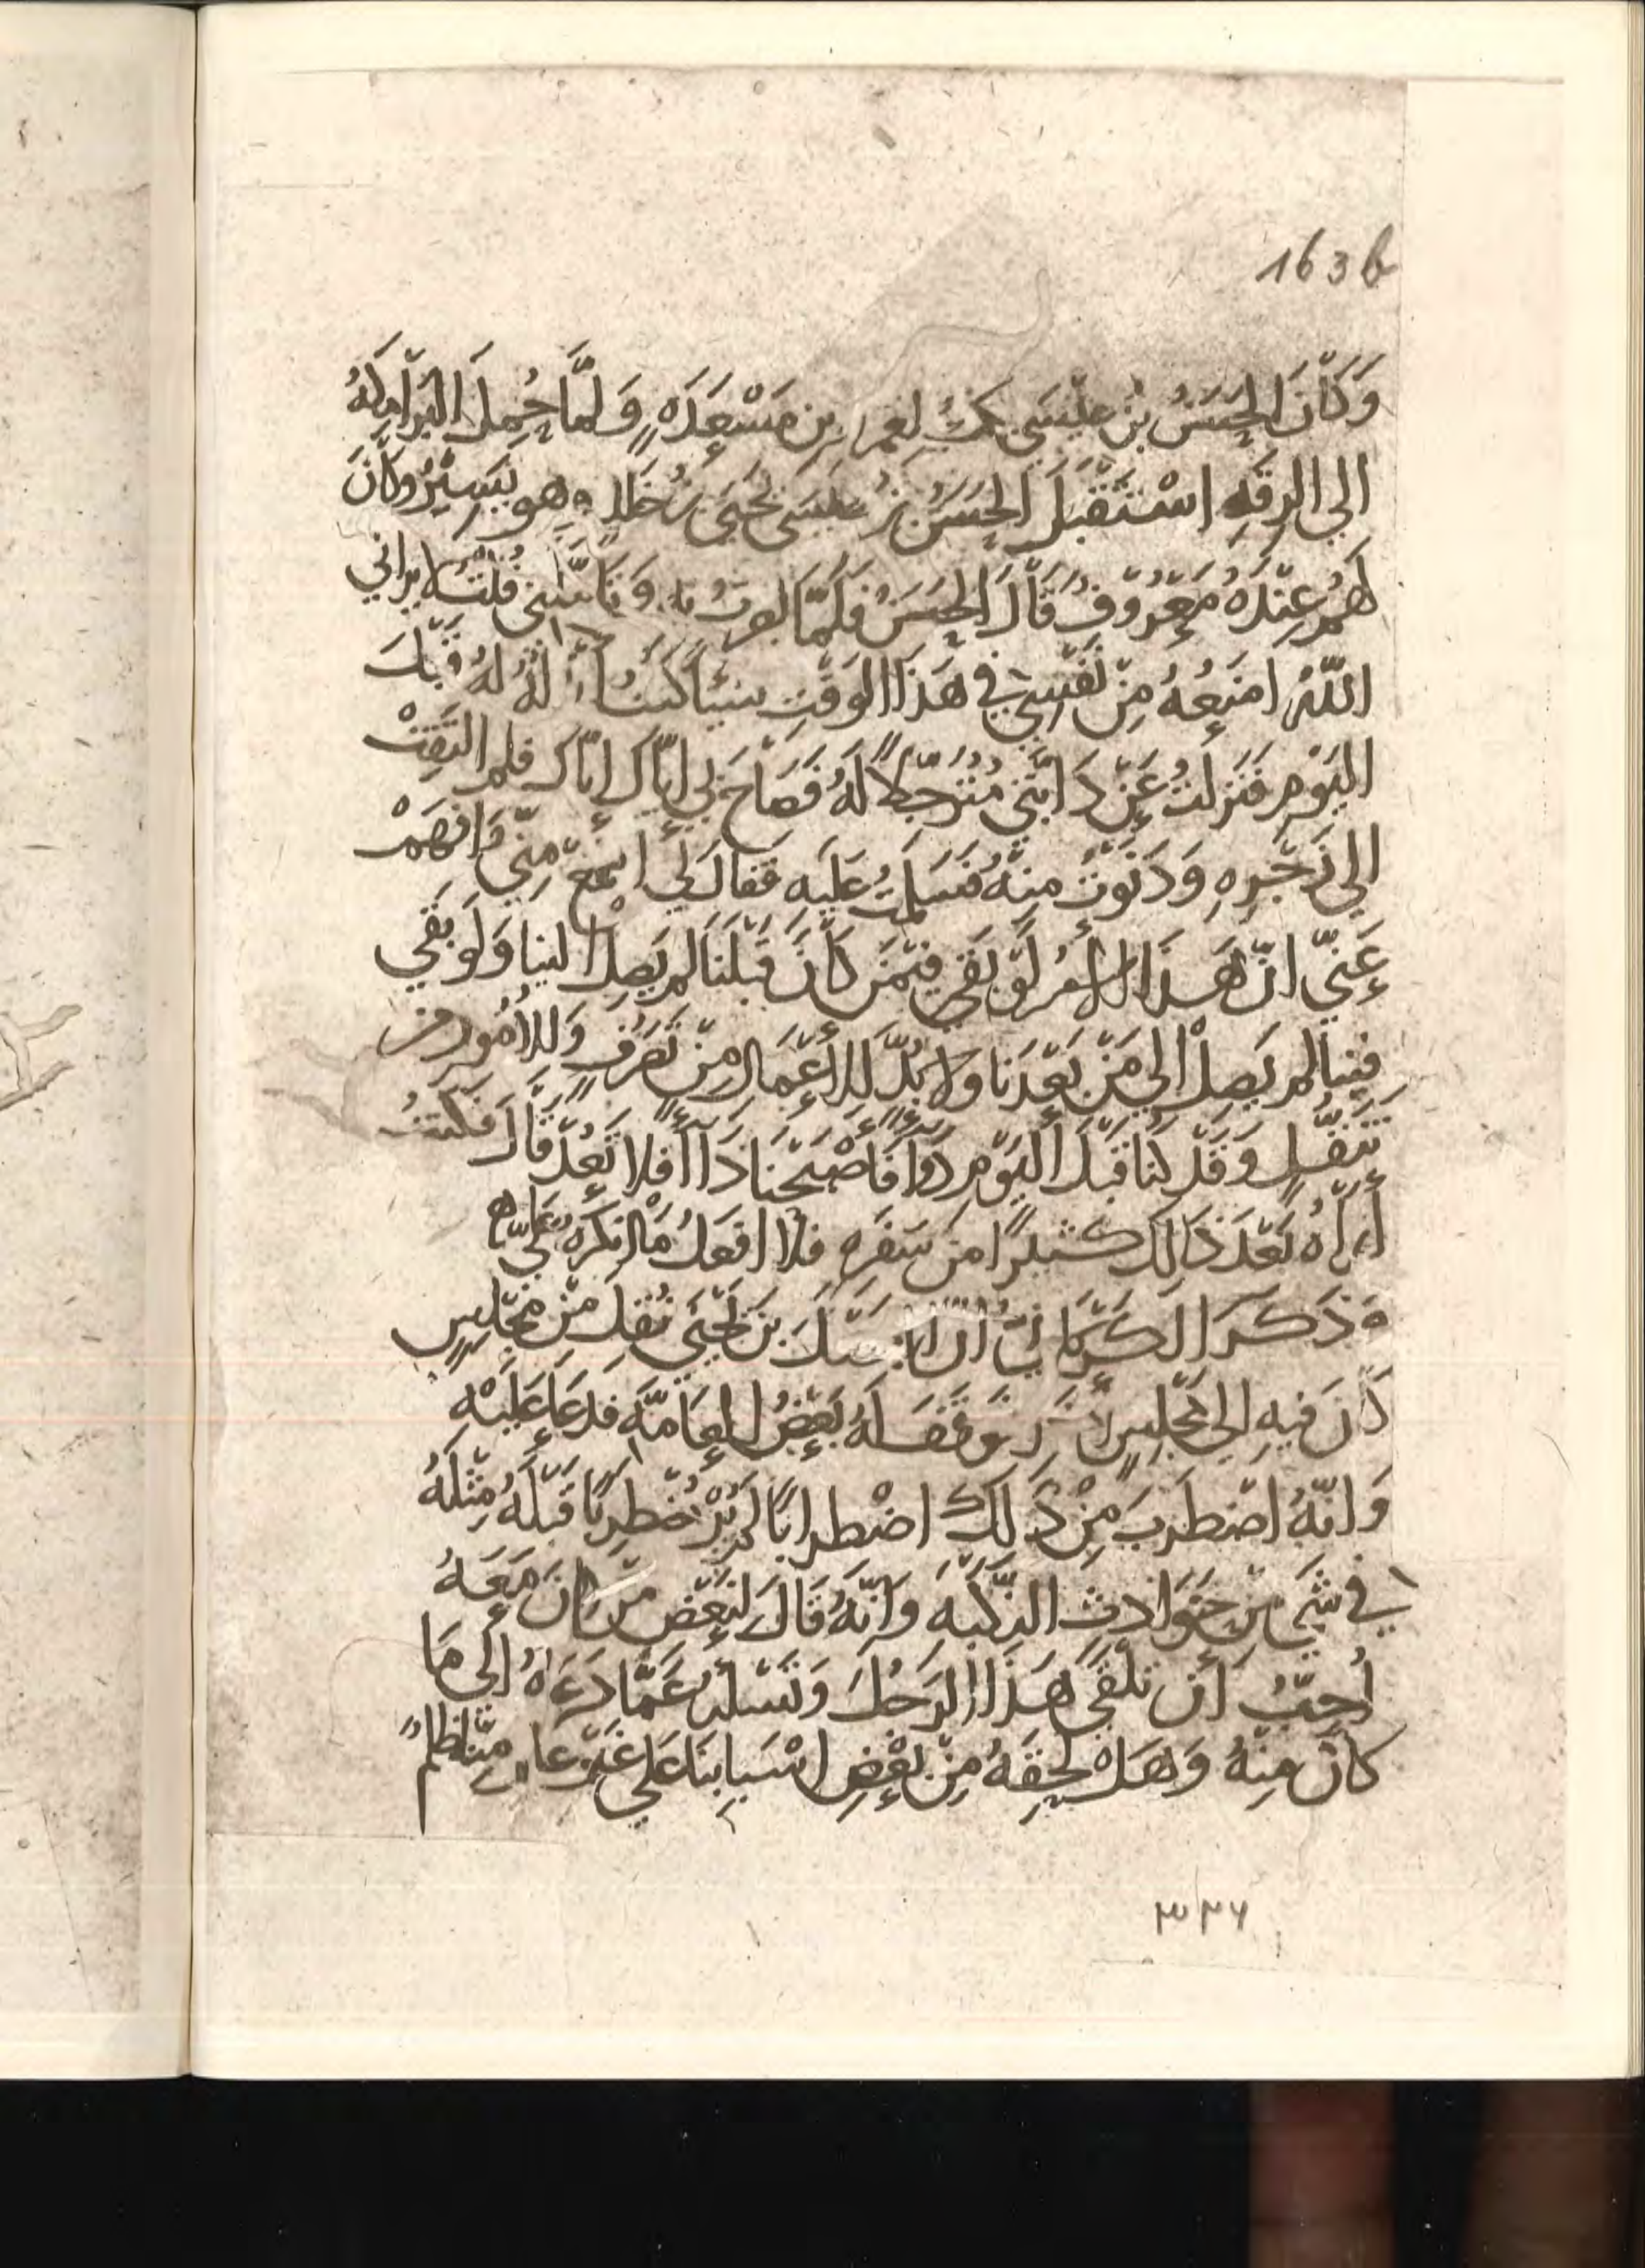 163b
وَكَانَ الحَسَنُ بنُ عيسَى يكتُبُ لعمرو بن مَسْعَدَهٍ وَلمَّا حُمِلَ البَرَامِكَهُ
الي الرقَهِ اسْتَقبَلَ الحَسَنُ بنُ عيسَى يَحيَى بنُ خَالدٍ وهو يَسِيْرُ وكَانَ
لَهُمْ عِنْدَهُ مَعْرُوفٌ قَالَ الحَسَنُ فَلمَّا بصرتُ به وَتَأمَّلَنِي قُلْتُ لا يراني
اللّهُ امنَعُهُ مِنْ نَفْسِي في هَذَا الوَقتِ شيئًا كنتُ أبْذلهُ لهُ قَبْلَ
اليَوْمِ فنَزلتُ عَنْ دَابَّتِي مُتَرَجِّلاً لَهُ فَصَاحَ بِي إيَّاكَ إيَّاكَ فلم التَفِتْ
الي زَجْرِهِ وَدَنَوتُ مِنهُ فَسَلمتُ عَليَهِ فقالَ لِي اسْمَعْ مِنِّي وَافهَمْ
عَنِّي انّ هَذا الأمرَ لَوْ بَقي فيْمَن كَانَ قَبْلَنَا لم يَصِلْ الينا وَلَو بَقي
فِينا لم يَصِلْ الي مَنْ بَعْدَنا ولا بُدَّ للأعْمَالِ مِنْ تَصَرُفٍ وَللأُمُور من
تَنَقُّلٍ وَقَدْ كنا قَبْلَ اليَوْمِ دَوَاءً فَأَصْبَحْنَا دَاءً فَلا تَعُدْ قَالَ فَكنتُ
أرَاهُ بَعْدَ ذَالكَ كثيرًا من سَفَرِه فَلا افعَلُ مَا انكَرَهُ عَلَيَّ
وَذَكَرَ الكَرْمَانيُّ أنَّ الفَضْلَ بنَ يَحْيَى نُقِلَ مِنْ مَجْلِسٍ
كَانَ فيهِ الى مَجْلِسٍ آخَرَ فوَقَفَ لَهُ بَعْضُ العَامَّهِ فدَعَا عَلَيْهِ
وَانَّهُ اضْطَرَبَ مِنْ ذَلكَ اضْطرابًا لم يُرَ مُضْطَرِبًا قَبْلَهُ مِثْلَهُ
في شَيءٍ مِن حَوَادث النَّكبه وَانَّهُ قَالَ لبَعْضِ مَن كانَ مَعَهُ
أُحِبُّ أنْ تلْقَي هَذَا الرَجُلَ وَتَسْئَلَهُ عَمَّا دَعَاهُ إلى مَا
كانَ مِنهُ وَهَلْ لَحِقَهُ مِنْ بَعْضِ اسْبَابِنَا عَلي غَيْرِ عِلمٍ مِنَّا ظلمٌ
٣٢٦